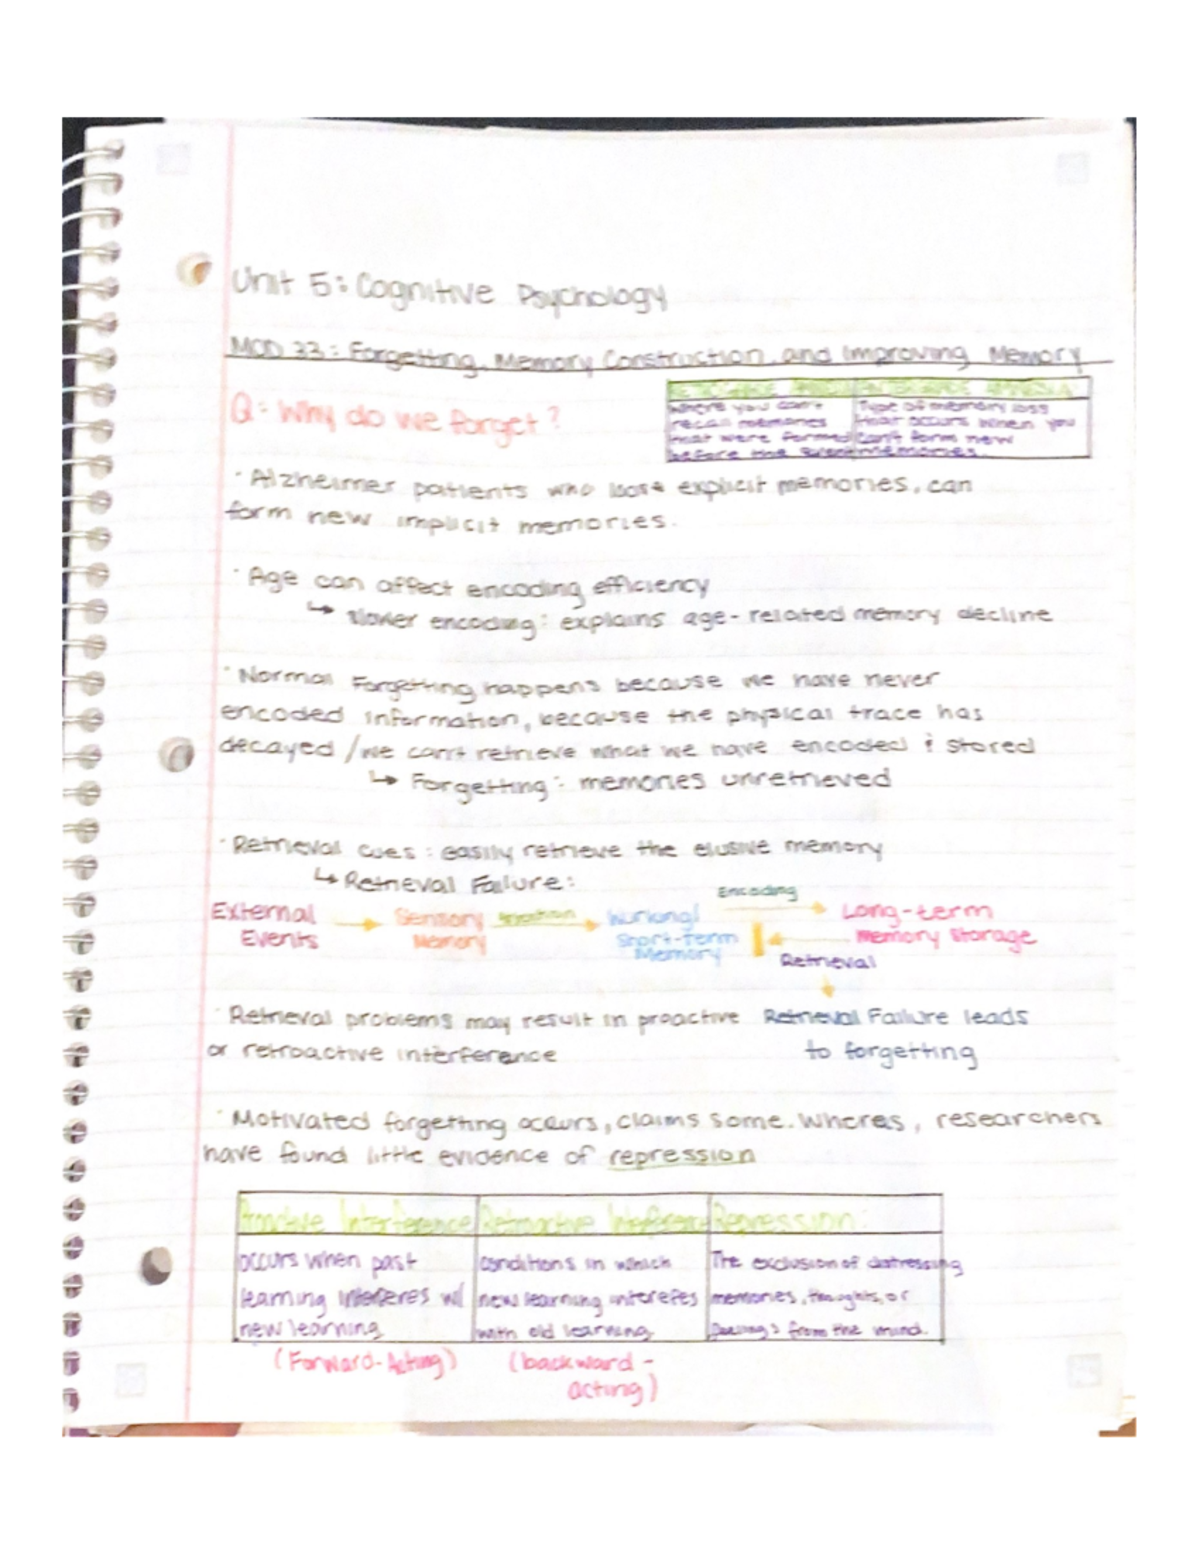 Unit 5: Cognitive Psychology
MOD 33: Forgetting, Memory Construction and Improving Memory
Q: Why do we forget?
RETROGRADE AMNESIA
where you can't
recall memories
that were formed
before the event
ANTEROGRADE AMNESIA
Type of memory loss
that occurs when you
can't form new
memories.
· Alzheimer patients who lose explicit memories, can
form new implicit memories.
· Age can affect encoding efficiency
↳ slower encoding: explains age-related memory decline
· Normal Forgetting happens because we have never
encoded information, because the physical trace has
decayed / we can't retrieve what we have encoded & stored
↳ Forgetting: memories unretrieved
· Retrieval cues: easily retrieve the elusive memory
↳ Retrieval Failure:
External
Events
Sensory
Memory
Attention
Working/
Short-Term
Memory
Encoding
Long-term
memory storage
Retrieval
Retrieval Failure leads
to forgetting
· Retrieval problems may result in proactive
or retroactive interference
· Motivated forgetting occurs, claims some. Wheres, researchers
have found little evidence of repression
Proactive Interference
occurs when past
learning interferes w/
new learning
(Forward-Acting)
Retroactive Interference
conditions in which
new learning interefes
with old learning
(backward-
acting)
Repression:
The exclusion of distressing
memories, thoughts, or
feelings from the mind.